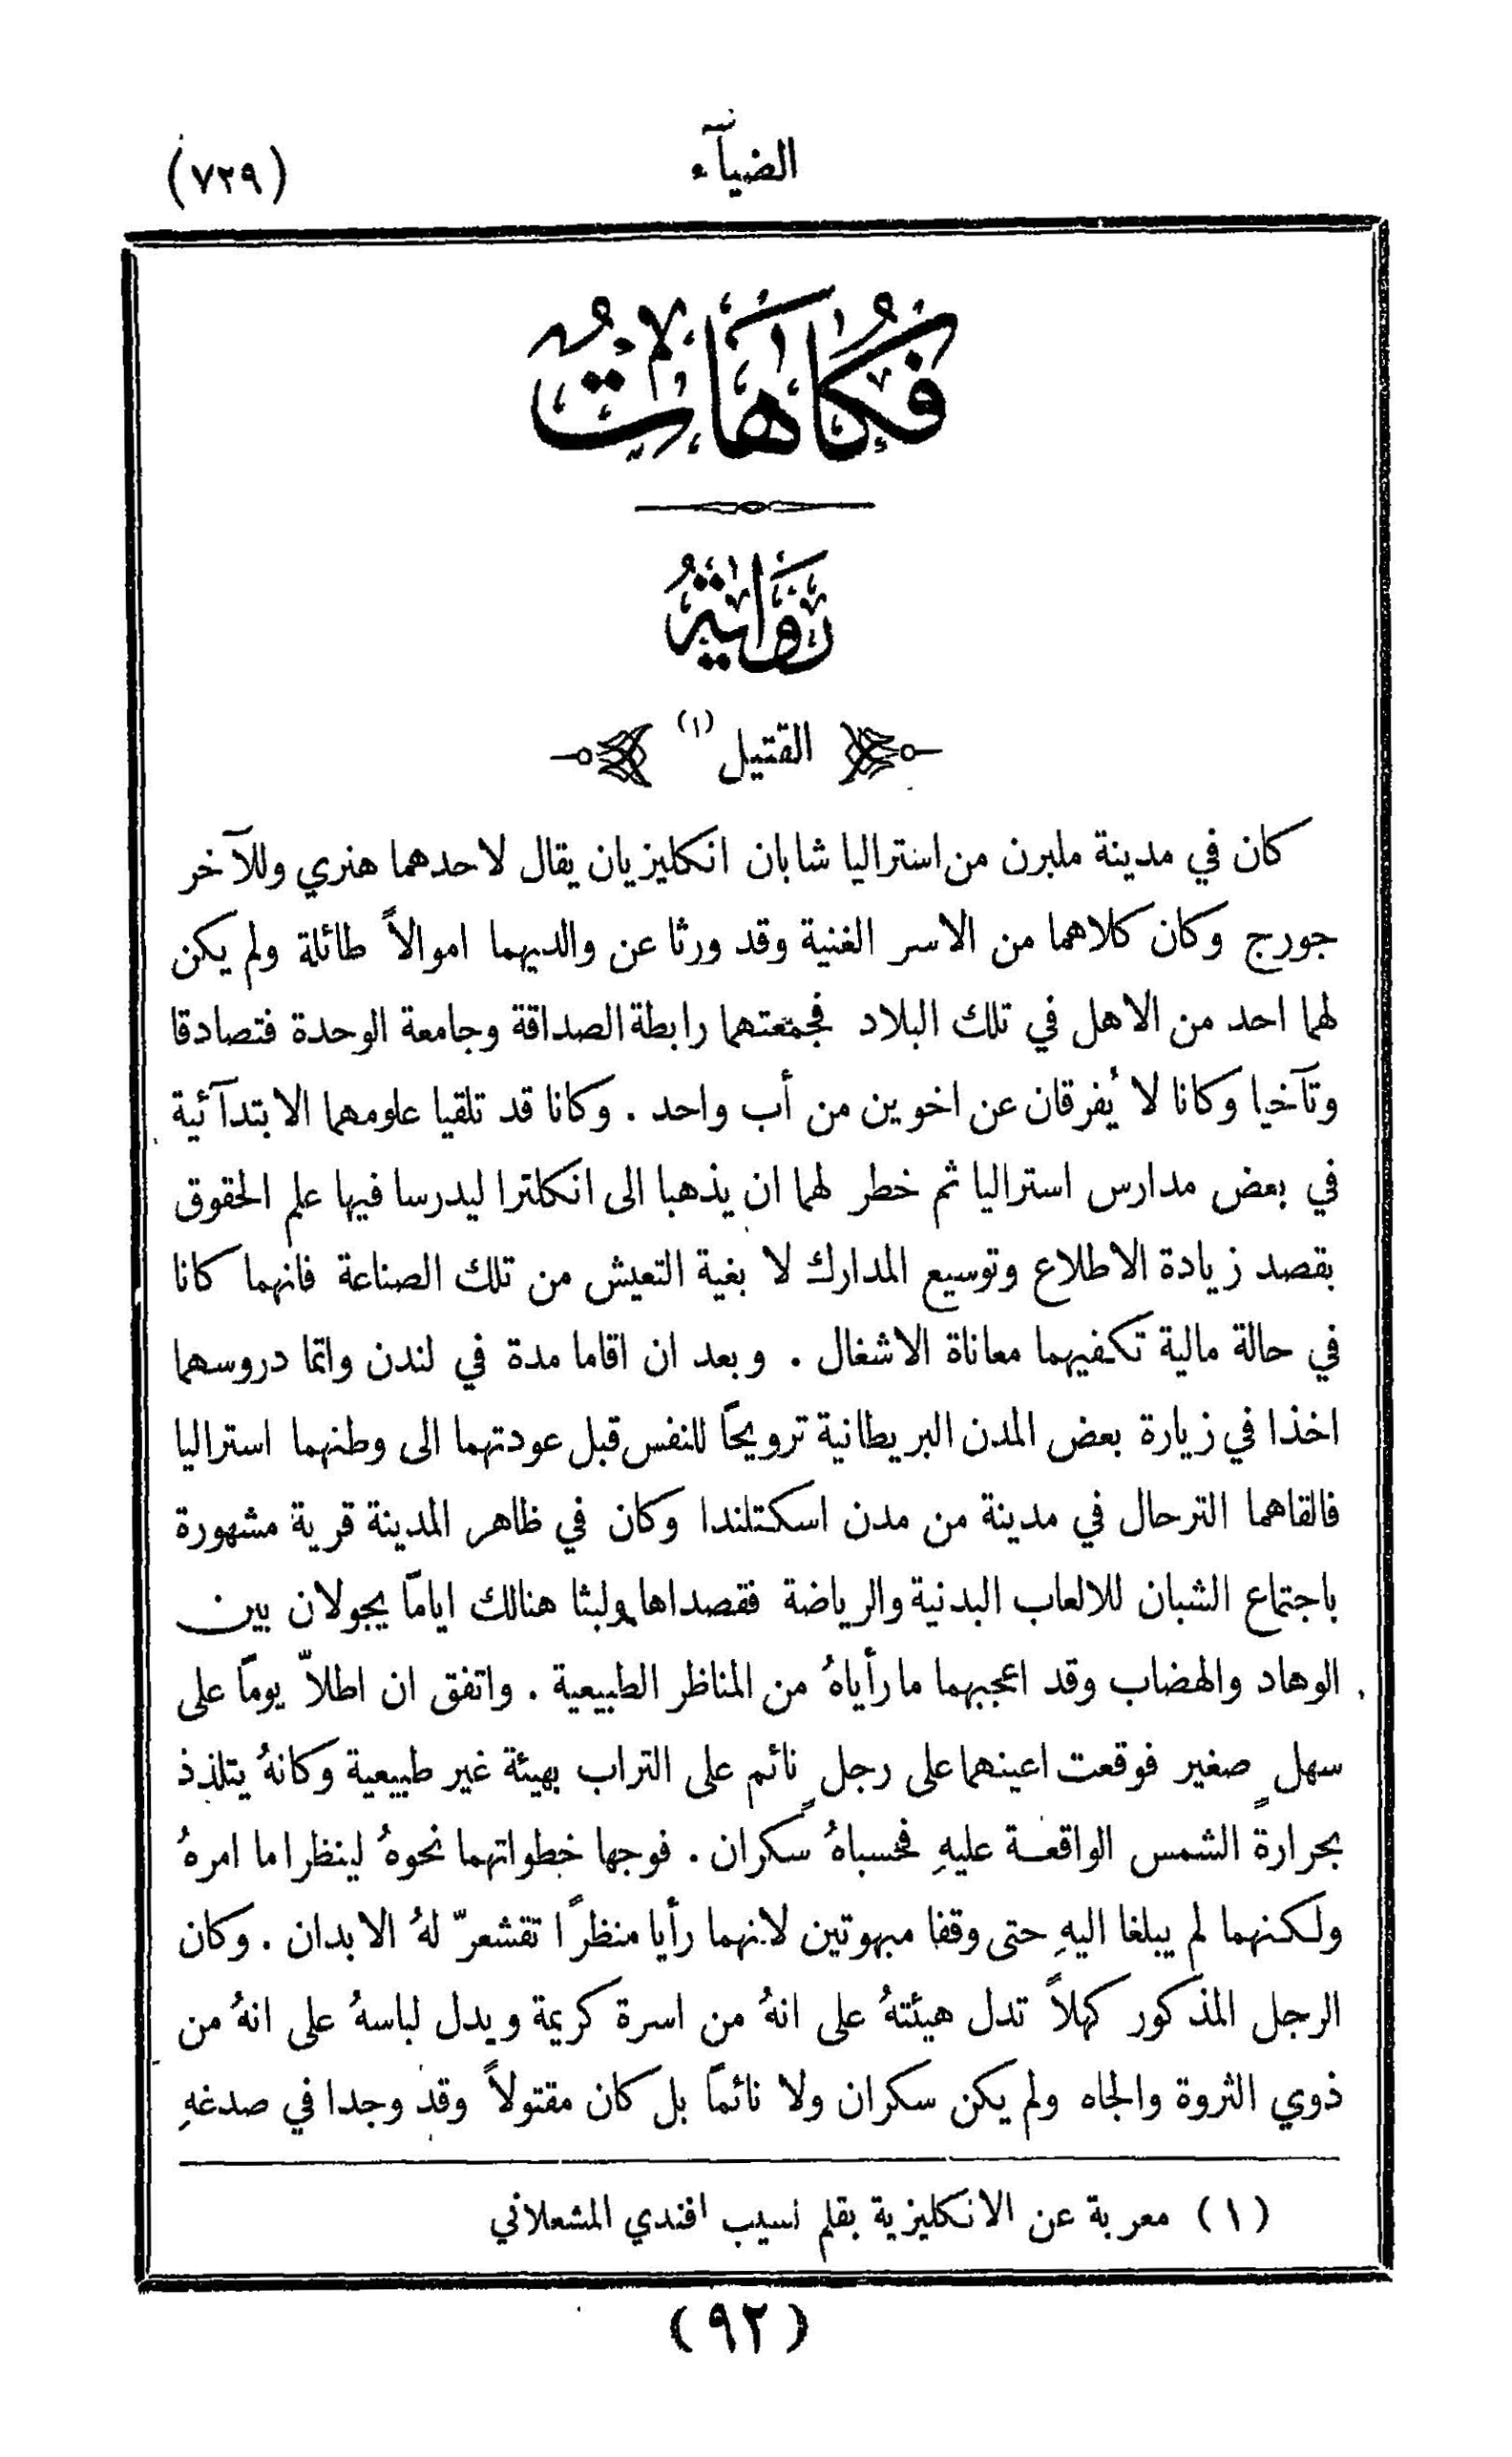 الضيآء
(٧٢٩)
فُكَاهَاتٌ
رِوَايَةُ
القتيل (١)
كان في مدينة ملبرن من استراليا شابان انكليزيان يقال لاحدهما هنري وللآخر
جورج وكان كلاهما من الاسر الغنية وقد ورثا عن والديهما اموالاً طائلة ولم يكن
لهما احد من الاهل في تلك البلاد فجمعتهما رابطة الصداقة وجامعة الوحدة فتصادقا
وتآخيا وكانا لا يُفرقان عن اخوين من أب واحد . وكانا قد تلقيا علومهما الابتدآئية
في بعض مدارس استراليا ثم خطر لهما ان يذهبا الى انكلترا ليدرسا فيها علم الحقوق
بقصد زيادة الاطلاع وتوسيع المدارك لا بغية التعيش من تلك الصناعة فانهما كانا
في حالة مالية تكفيهما معاناة الاشغال . وبعد ان اقاما مدة في لندن واتما دروسهما
اخذا في زيارة بعض المدن البريطانية ترويحًا للنفس قبل عودتهما الى وطنهما استراليا
فالقاهما الترحال في مدينة من مدن اسكتلندا وكان في ظاهر المدينة قرية مشهورة
باجتماع الشبان للالعاب البدنية والرياضة فقصداها ولبثا هنالك ايامًا يجولان بين
الوهاد والهضاب وقد اعجبهما ما رأياهُ من المناظر الطبيعية . واتفق ان اطلاّ يومًا على
سهلٍ صغير فوقعت اعينهما على رجلٍ نائم على التراب بهيئة غير طبيعية وكانهُ يتلذذ
بحرارة الشمس الواقعة عليهِ فحسباهُ سكران . فوجها خطواتهما نحوهُ لينظرا ما امرهُ
ولكنهما لم يبلغا اليهِ حتى وقفا مبهوتين لانهما رأيا منظرًا تقشعرّ لهُ الابدان . وكان
الرجل المذكور كهلاً تدل هيئتهُ على انهُ من اسرة كريمة ويدل لباسهُ على انهُ من
ذوي الثروة والجاه ولم يكن سكران ولا نائمًا بل كان مقتولاً وقد وجدا في صدغهِ
(١) معربة عن الانكليزية بقلم نسيب افندي المشعلاني
(٩٢)